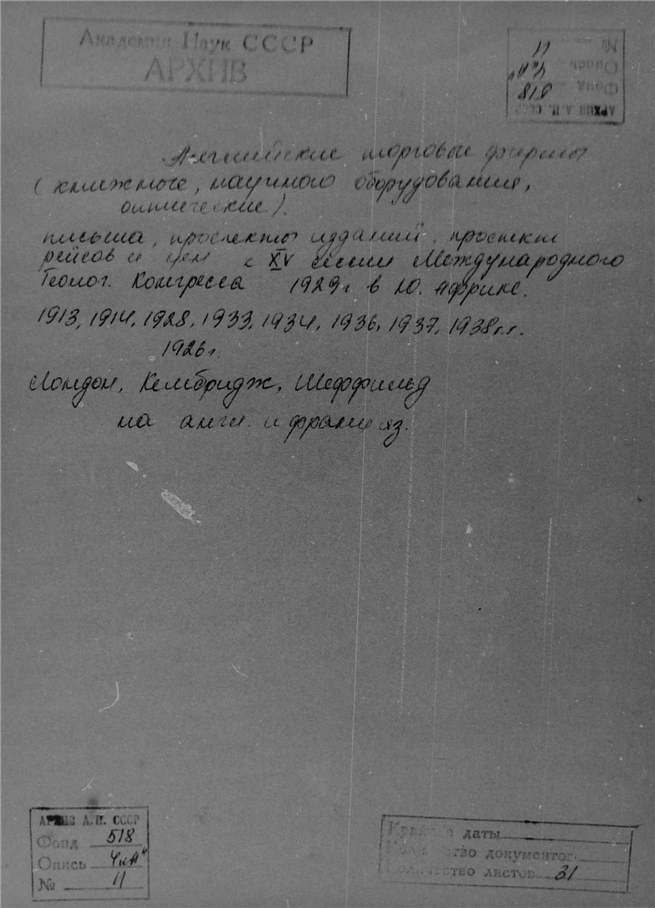 Академия Наук СССР
АРХИВ
АРХИВ А.Н. СССР
Фонд 518
Опись 4 "А"
№ 11
Английские торговые фирмы
(книжные, научного оборудования,
оптические).
письма, проспекты изданий, проспект
рейсов и цен к XV сессии Международного
Геолог. Конгресса 1929 г в Ю. Африке.
1913, 1914, 1928, 1933, 1934, 1936, 1937, 1938 г.г.
1926 г.
Лондон, Кембридж, Шеффильд
на англ. и франц яз.
АРХИВ А.Н. СССР
Фонд 518
Опись 4 "А"
№ 11
Крайние даты
Количество документов
Количество листов 31